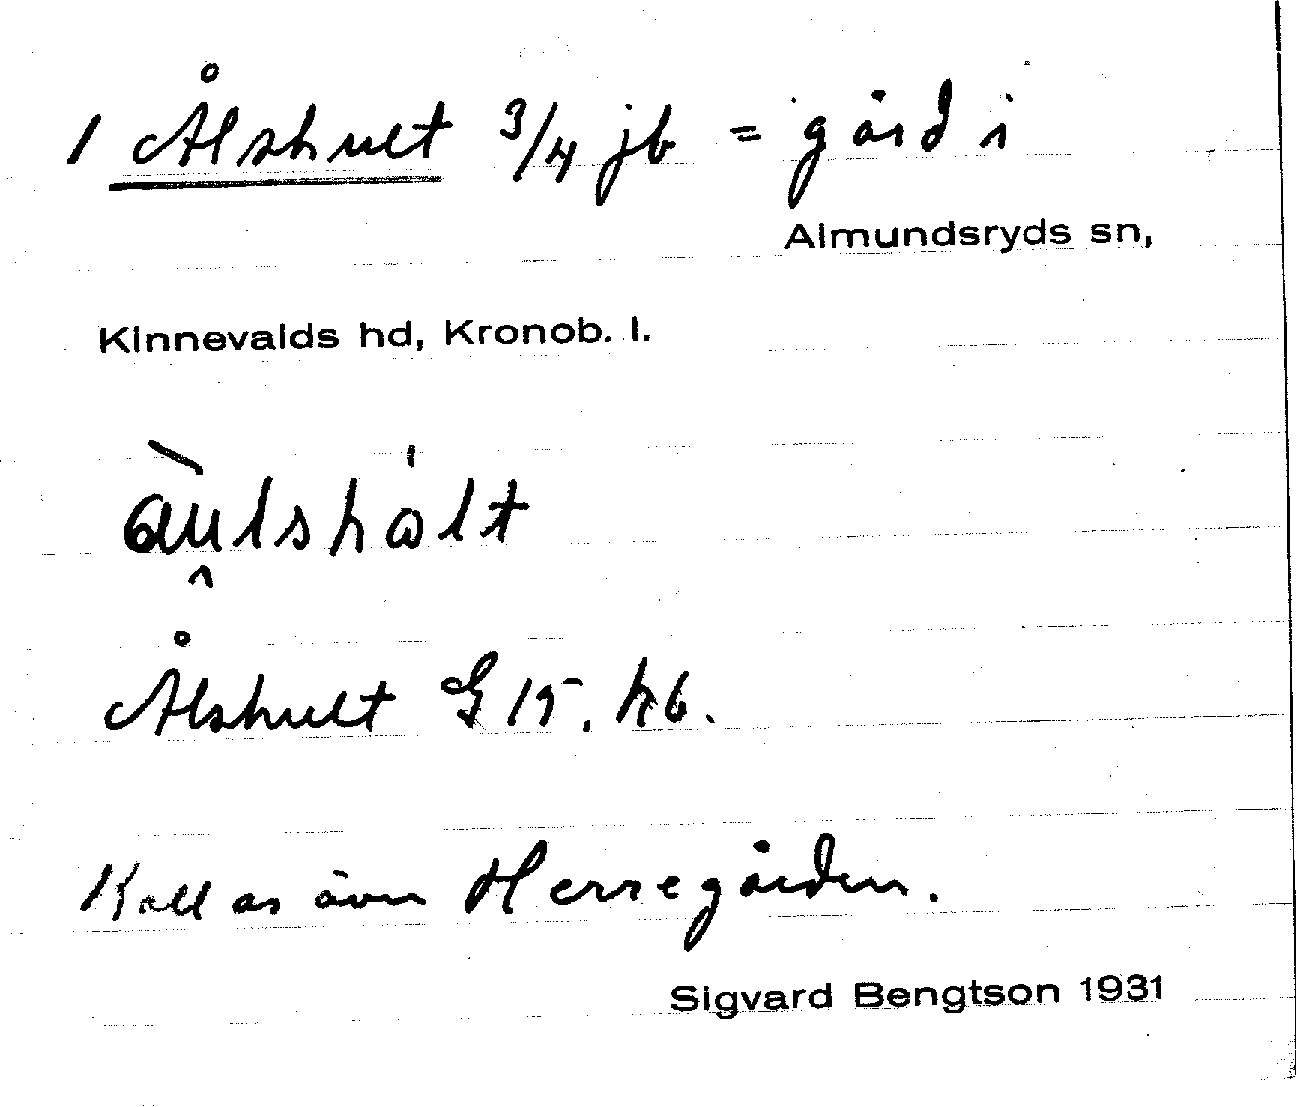 1 Ålshult 3/4 jb = gård i
Almundsryds sn,
Kinnevalds hd, Kronob. l.
Ålshult G 15. hb.
Kallas även Herregården.
Sigvard Bengtson 1931